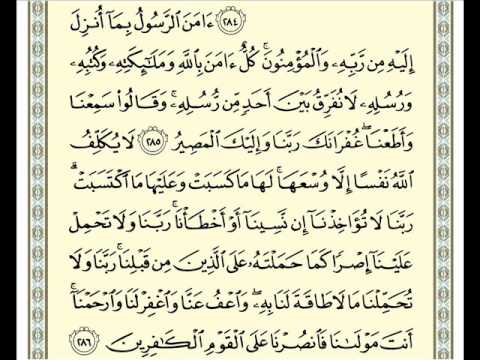 ﴿٢٨٤﴾ ءَامَنَ ٱلرَّسُولُ بِمَآ أُنزِلَ
إِلَيْهِ مِن رَّبِّهِۦ وَٱلْمُؤْمِنُونَ ۚ كُلٌّ ءَامَنَ بِٱللَّهِ وَمَلَٰٓئِكَتِهِۦ وَكُتُبِهِۦ
وَرُسُلِهِۦ لَا نُفَرِّقُ بَيْنَ أَحَدٍ مِّن رُّسُلِهِۦ ۚ وَقَالُوا۟ سَمِعْنَا
وَأَطَعْنَا ۖ غُفْرَانَكَ رَبَّنَا وَإِلَيْكَ ٱلْمَصِيرُ ﴿٢٨٥﴾ لَا يُكَلِّفُ
ٱللَّهُ نَفْسًا إِلَّا وُسْعَهَا ۚ لَهَا مَا كَسَبَتْ وَعَلَيْهَا مَا ٱكْتَسَبَتْ ۗ
رَبَّنَا لَا تُؤَاخِذْنَآ إِن نَّسِينَآ أَوْ أَخْطَأْنَا ۚ رَبَّنَا وَلَا تَحْمِلْ
عَلَيْنَآ إِصْرًا كَمَا حَمَلْتَهُۥ عَلَى ٱلَّذِينَ مِن قَبْلِنَا ۚ رَبَّنَا وَلَا
تُحَمِّلْنَا مَا لَا طَاقَةَ لَنَا بِهِۦ ۖ وَٱعْفُ عَنَّا وَٱغْفِرْ لَنَا وَٱرْحَمْنَآ ۚ
أَنتَ مَوْلَىٰنَا فَٱنصُرْنَا عَلَى ٱلْقَوْمِ ٱلْكَٰفِرِينَ ﴿٢٨٦﴾